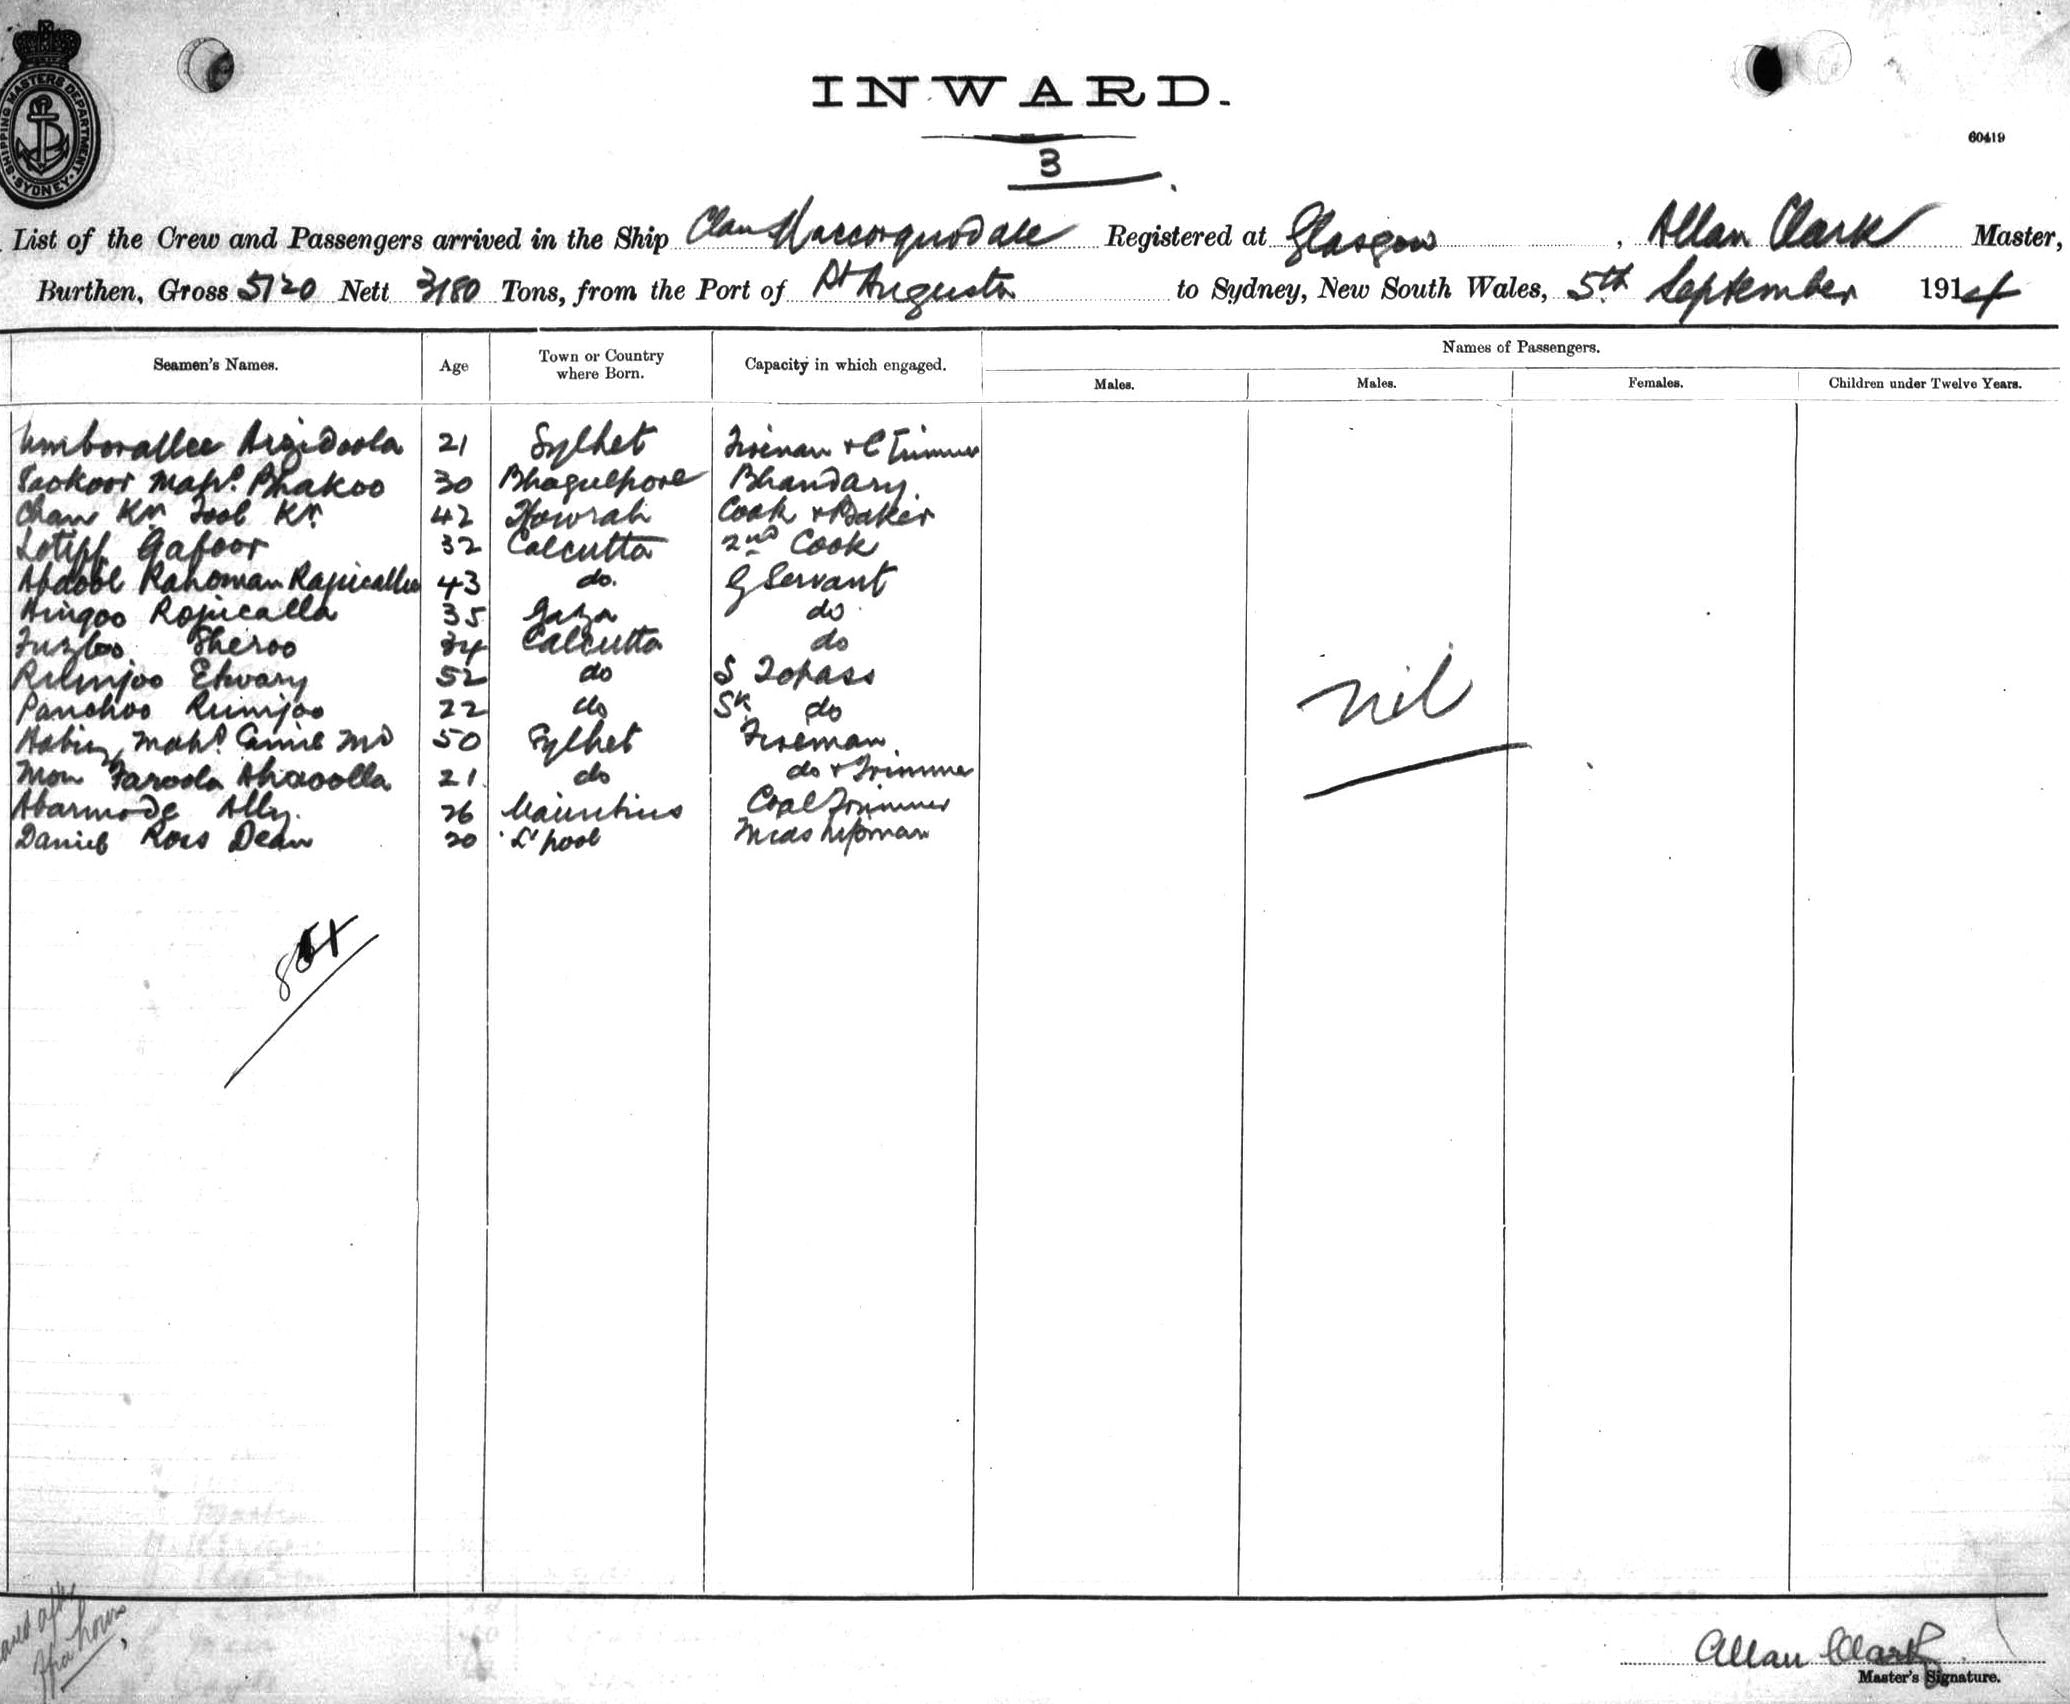 SHIPPING MASTERS DEPARTMENT
SYDNEY
INWARD.
60419
3
List of the Crew and Passengers arrived in the Ship Clan Maccorquodale Registered at Glasgow, Allan Clark Master,
Burthen, Gross 5120 Nett 3180 Tons, from the Port of Pt Augusta to Sydney, New South Wales, 5th September 1914
Seamen's Names. Age Town or Country where Born. Capacity in which engaged. Names of Passengers.
Males. Males. Females. Children under Twelve Years.
Umborallee 21 Sylhet Fireman + C Trimmer
Mahd. Bhakoo 30 Bhagulpore Bhandary
Chan Kn. Fool Kn. 42 Howrah Cook + Baker
Lotiff Gafoor 32 Calcutta 2nd Cook
Abdool Rahoman 43 do. G Servant
35 do
Fuzloo Sheroo 34 Calcutta do
Rumjoo 52 do S Topass
Panchoo Rumjoo 22 do Sk do
Mahd. 50 Sylhet Fireman
21 do do + Trimmer
Ally. 26 Mauritius Coal Trimmer
Daniel Ross Dean 20 L'pool Midshipman
nil
hours
Allan Clark
Master's Signature.